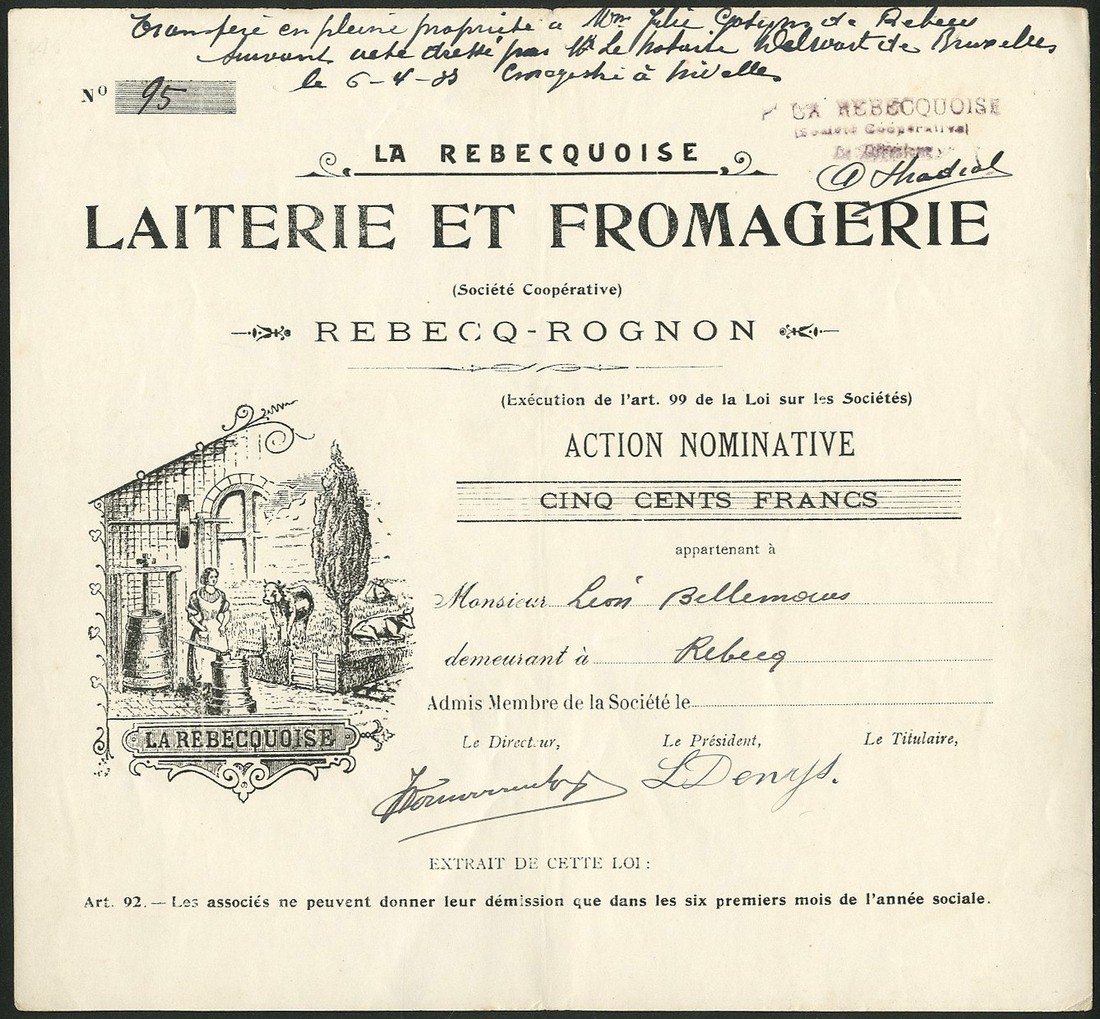 Transféré en pleine propriété à Mme Julie de Rebecq
suivant acte dressé par Me Le Notaire de Bruxelles
le 6-4-33 Enregistré à Nivelles
No 95
LA REBECQUOISE
(Société Coopérative)
LA REBECQUOISE
LAITERIE ET FROMAGERIE
(Société Coopérative)
REBECQ-ROGNON
(Exécution de l'art. 99 de la Loi sur les Sociétés)
ACTION NOMINATIVE
CINQ CENTS FRANCS
appartenant à
Monsieur Léon Bellemans
demeurant à Rebecq
Admis Membre de la Société le
LA REBECQUOISE
Le Directeur, Le Président, Le Titulaire,
L Denys.
EXTRAIT DE CETTE LOI :
Art. 92. — Les associés ne peuvent donner leur démission que dans les six premiers mois de l'année sociale.